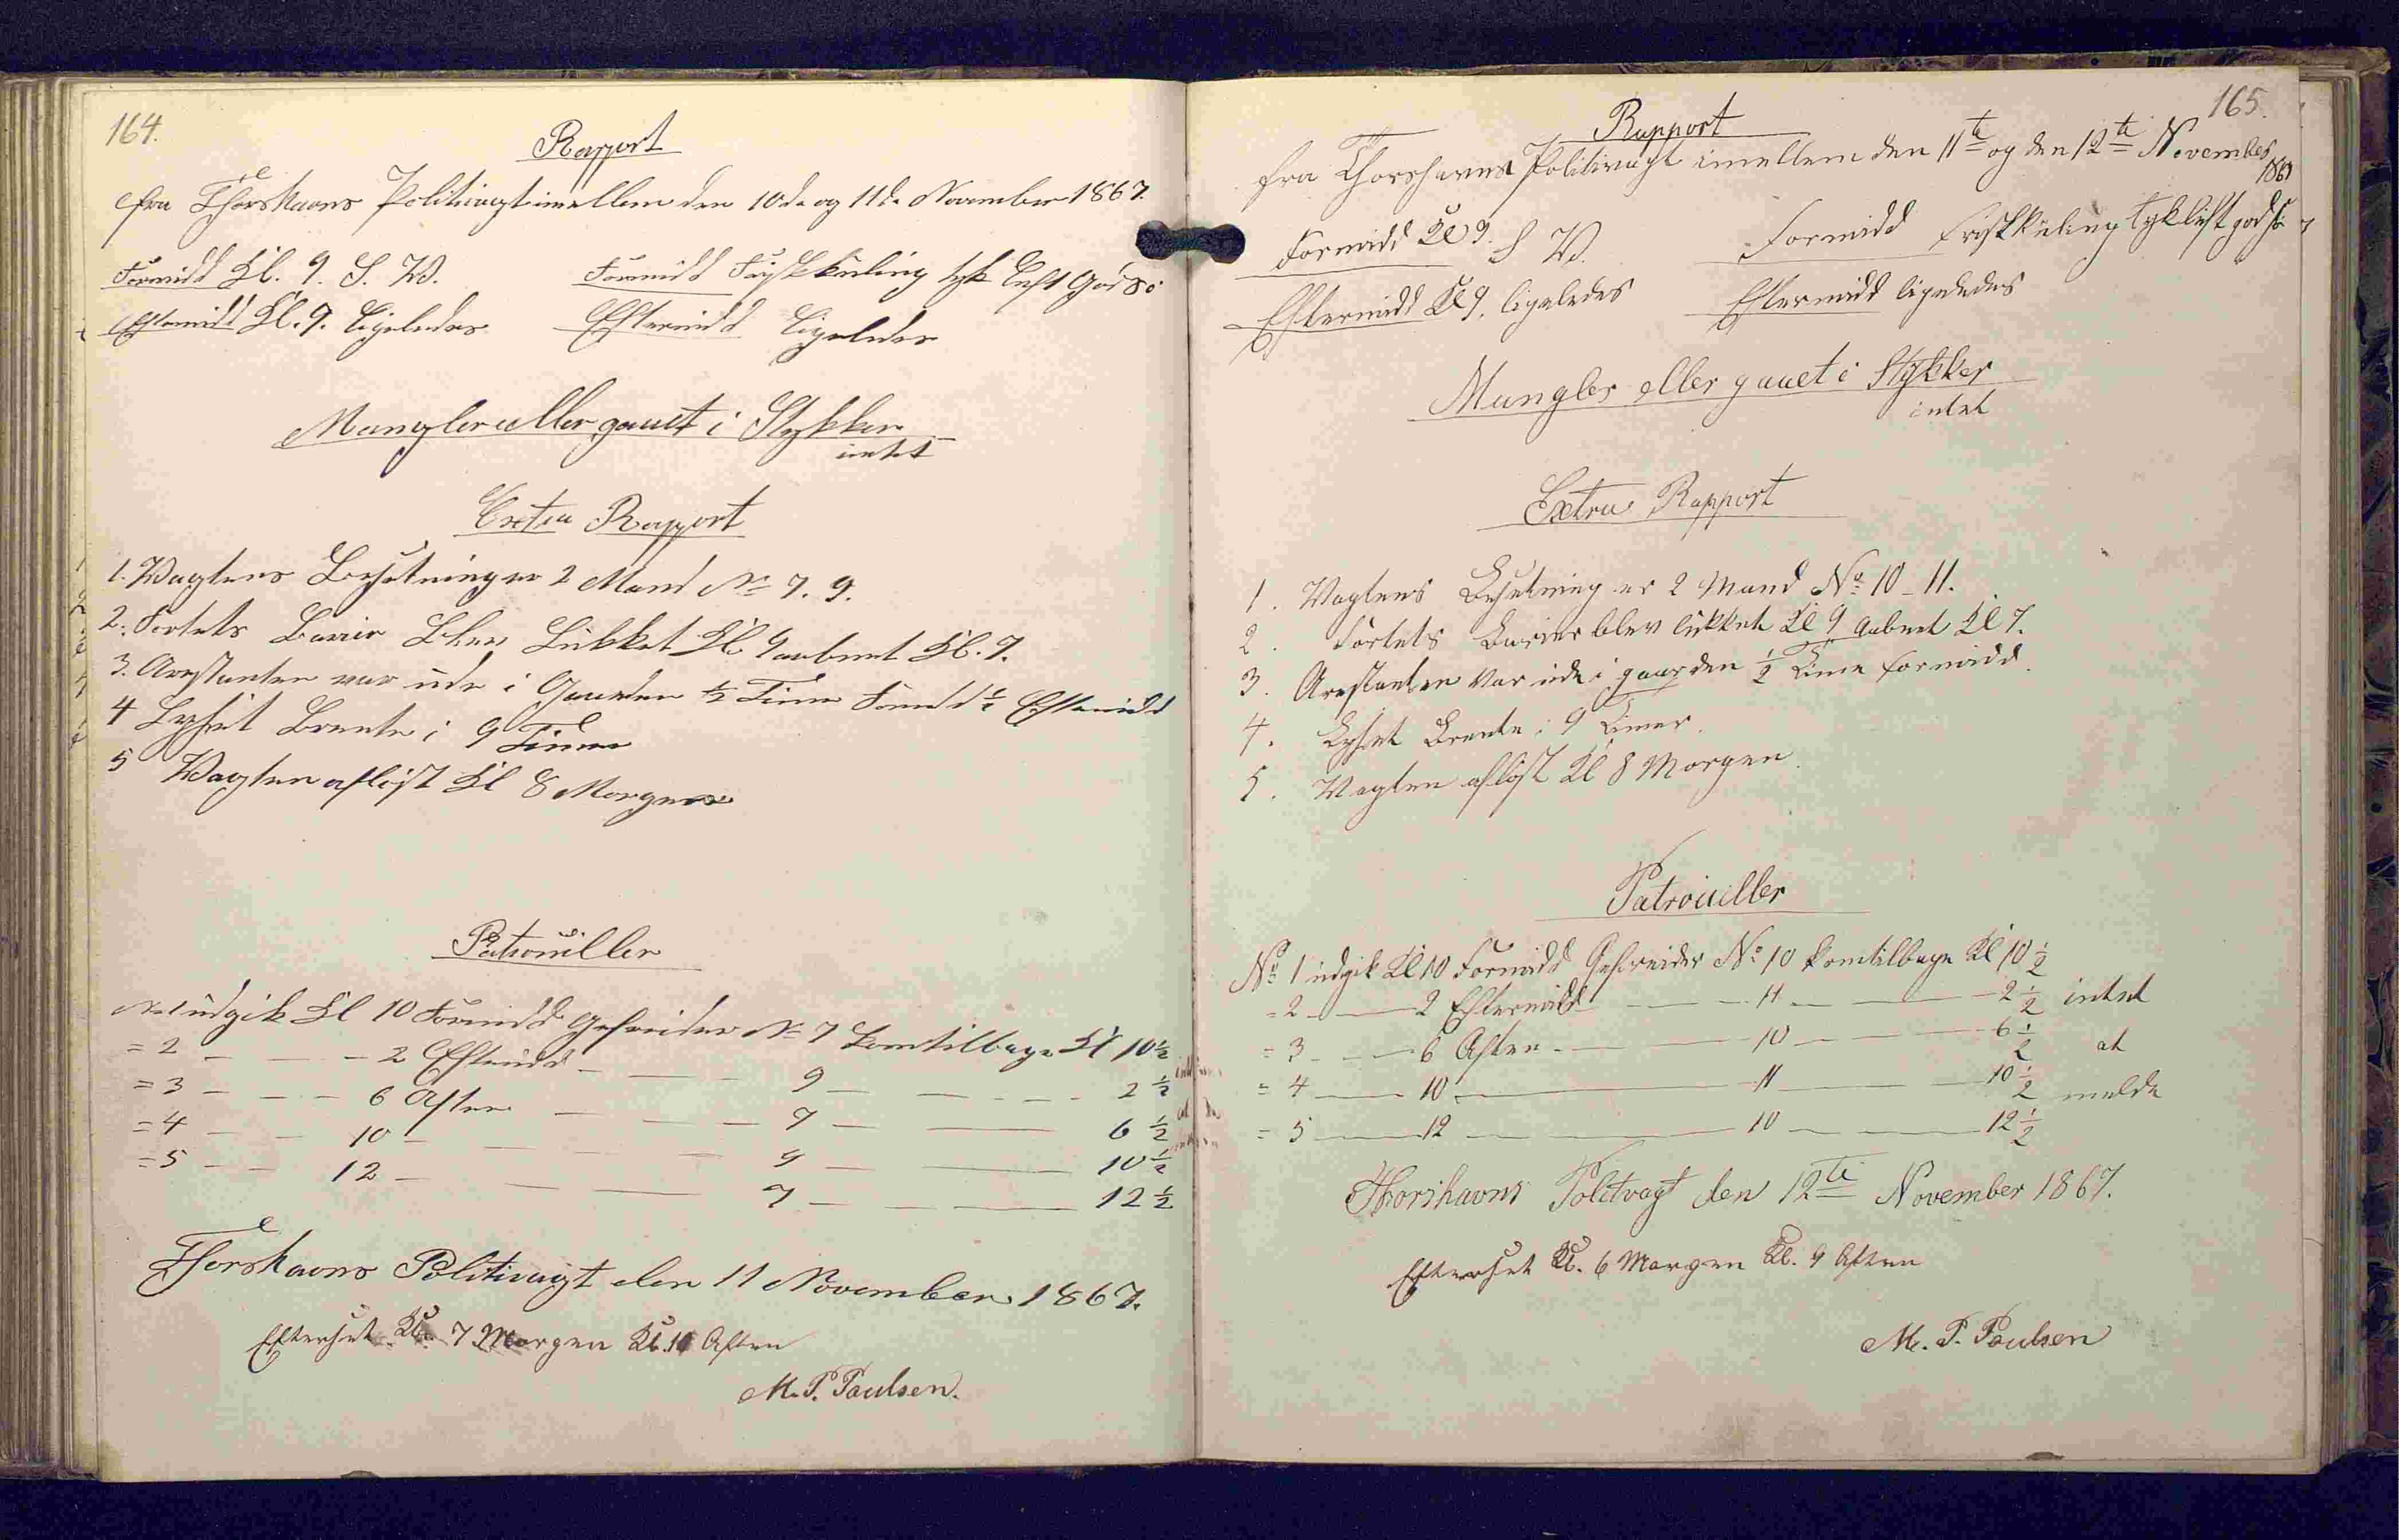 164.
Rapport
fra Thorshavns Politivagt imellem den 10de og 11te November 1867.
Formidd Kl. 9. S. W. Formidd Friskkuling tyk Luft God Sö
Eftermidd Kl. 9. Ligeledes Eftermidd Ligeledes
Mangler eller gaaet i Stykker
intet
Extra Rapport
1. Wagtens Besetning er 2 Mand No 7. 9.
2. Fortets Barrier Blev Lukket Kl. 9 aabnet Kl. 7.
3. Arrestanten var ude i Gaarden ½ Time Formd ½ Eftermidd
4 Lyset Brente i 9 Timer
5 Wagten aflöst Kl 8 Morgen
Patrouiller
No 1 udgik Kl 10 Formidd Gefreider No 7 kom tilbage Kl 10½
= 2 — — 2 Eftmidd — — 9 — — 2½
= 3 — — 6 Aften — — 7 — — 6½
= 4 — — 10 — — 9 — — 10½
= 5 — — 12 — — 7 — — 12½
Thorshavns Politivagt den 11 November 1867.
Efterset Kl. 7 Morgen Kl. 10 Aften
M. P. Paulsen.
165.
Rapport
fra Thorshavns Politivagt imellem den 11te og den 12te November
1867
Formidd Kl 9. S W. Formidd Friskkuling tyk luft god Sö
Eftermidd Kl 9. ligeledes Eftermidd ligeledes
Mangler eller gaaet i Stykker
intet
Extra Rapport
1. Vagtens Besetning er 2 Mand No 10 - 11.
2. Fortets Barrier blev lukket Kl 9 Aabnet Kl 7.
3. Arrestanten var ude i gaarden ½ Time formidd.
4. Lyset Brente i 9 Timer.
5. Vagten aflöst Kl 8 Morgen.
Patrouiller
No 1 udgik Kl 10 Formidd Gefreider No 10 kom tilbage Kl 10½
= 2 — 2 Eftermidd — — 11 — — 2½ intet
= 3 — 6 Aften — — 10 — — 6½ at
= 4 — 10 — — 11 — — 10½ melde
= 5 — 12 — — 10 — — 12½
Thorshavns Politvagt den 12te November 1867.
Efterset Kl. 6 Morgen Kl. 9 Aften
M. P. Paulsen